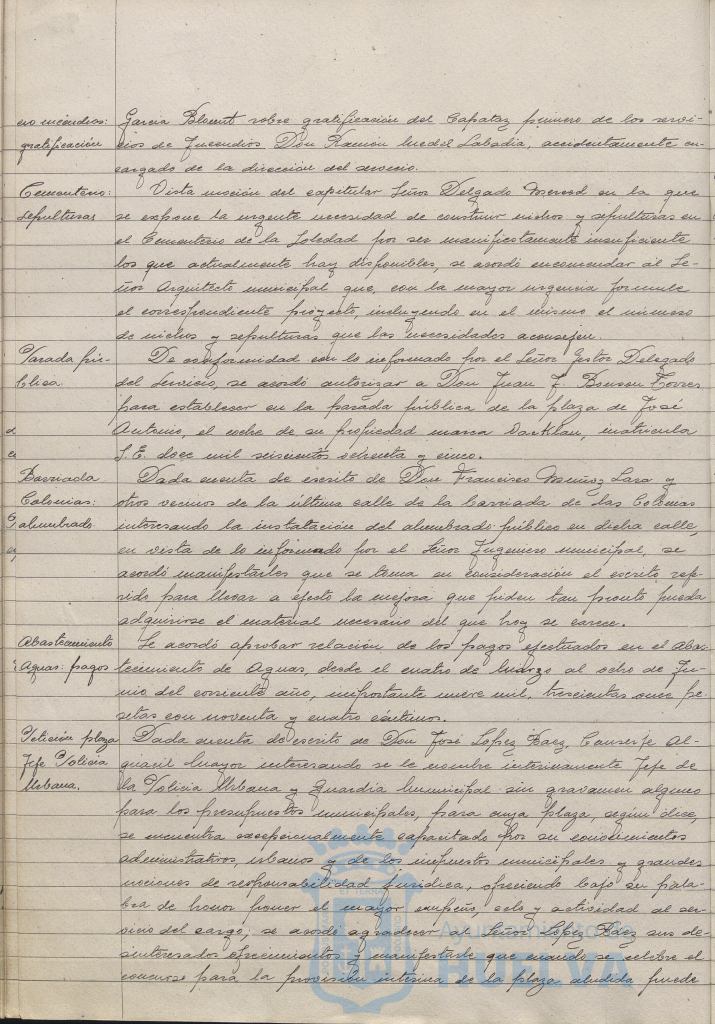 cio incendios: Garcia Blucut sobre gratificación del Capataz primero de los servi-
gratificación cios de Incendios Don Ramón Medel Labadía, accidentamente en-
cargado de la dirección del servicio.
Cementerio: Vista moción del capitular Señor Delgado Merced en la que
Sepulturas se expone la urgente necesidad de construir nichos y sepulturas en
el Cementerio de la Soledad por ser manifiestamente insuficiente
los que actualmente hay disponibles, se acordó encomendar al Se-
ñor Arquitecto municipal que, con la mayor urgencia formule
el correspondiente proyecto, incluyendo en el mismo el número
de nichos y sepulturas que las necesidades aconsejen.
Parada pú- De conformidad con lo informado por el Señor Gestor Delegado
blica. del Servicio, se acordó autorizar a Don Juan F. Bonson Torres
para establecer en la parada pública de la plaza de José
Antonio, el coche de su propiedad marca matrícula
S.E. doce mil seiscientos ochenta y cinco.
Barriada Dada cuenta de escrito de Don Francisco Muñoz Lara y
Colonias: otros vecinos de la última calle de la barriada de las Colonias
alumbrado. interesando la instalación del alumbrado público en dicha calle,
en vista de lo informado por el Señor Ingeniero municipal, se
acordó manifestarles que se toma en consideración el escrito refe-
rido para llevar a efecto la mejora que piden tan pronto pueda
adquirirse el material necesario del que hoy se carece.
Abastecimiento Se acordó aprobar relación de los pagos efectuados en el Abas-
Aguas: pagos tecimiento de Aguas, desde el cuatro de Marzo al ocho de Ju-
nio del corriente año, importante nueve mil, trescientas once pe-
setas con noventa y cuatro céntimos.
Petición plaza Dada cuenta de escrito de Don José López Baez, Conserje Al-
Jefe Policía guacil Mayor interesando se le nombre interinamente Jefe de
Urbana. la Policía Urbana y Guardia Municipal sin gravamen alguno
para los presupuestos municipales, para cuya plaza, según dice,
se encuentra excepcionalmente capacitado por su conocimientos
administrativos, urbanos y de los impuestos municipales y grandes
nociones de responsabilidad jurídica, ofreciendo bajo su pala-
bra de honor poner el mayor empeño, celo y actividad al ser-
vicio del cargo; se acordó agradecer al Señor López Baez sus de-
sinteresados ofrecimientos y manifestarle que cuando se celebre el
concurso para la provisión interina de la plaza aludida puede
Ayuntamiento de
HUELVA